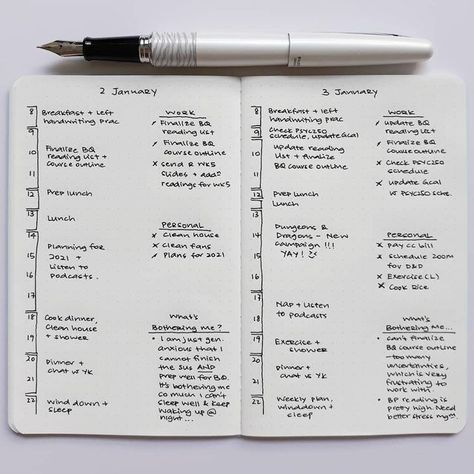 2 January
8 Breakfast + left
handwriting prac
9
10 Finalize BQ
reading list +
11 course outline
12 Prep lunch
13 Lunch
14
15 Planning for
2021 +
16 Listen to
podcasts.
17
18 Cook dinner,
clean house
19 + shower
20 Dinner +
chat w YK
21
22 Wind down +
sleep
WORK
x Finalize BQ
reading list
x Finalize BQ
course outline
x send R WK5
slides + add
readings for WK5
PERSONAL
x Clean house
x Clean fans
x Plans for 2021
What's
Bothering me?
• I am just gen.
anxious that I
cannot finish
the SUS AND
prep well for BQ.
It's bothering me
so much I can't
sleep well & keep
waking up @
night...
3 January
8 Breakfast + left
handwriting prac
9 Check PSYC250
schedule, update Gcal
10 update reading
list + finalize
11 BQ course outline
12 Prep lunch
Lunch
13
14 Dungeons &
Dragons - New
15 campaign !!!
YAY!
16
17
18 Nap + Listen
to podcasts
19 Exercise +
shower
20 Dinner +
chat w YK
21
22 Weekly plan,
winddown +
sleep
WORK
x update BQ
reading list
x Finalize BQ
course outline
x Check PSYC250
schedule
x update Gcal
PERSONAL
x pay CC bill
x schedule zoom
for D&D
x Exercise (L)
x Cook Rice
What's
Bothering Me...
• can't finalize
BQ course outline
- too many
uncertainties,
which is very
frustrating to
work with
• BP reading is
pretty high. Need
better stress